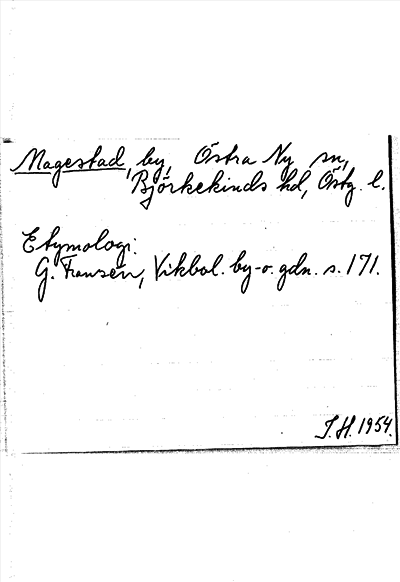 Magestad, by, Östra Ny sn,
Björkekinds hd, Östg. l.
Etymologi:
G. Franzén, Vikbol. by- o. gdn. s. 171.
I.H. 1954.